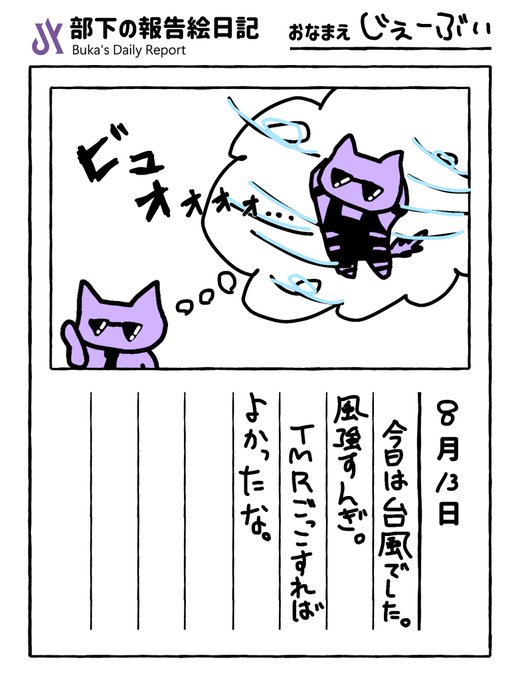 JY 部下の報告絵日記
Buka's Daily Report
おなまえ じぇーぶぃ
ビュオォォォ...
8月13日
今日は台風でした。
風強すんぎ。
TMRごっこすれば
よかったな。